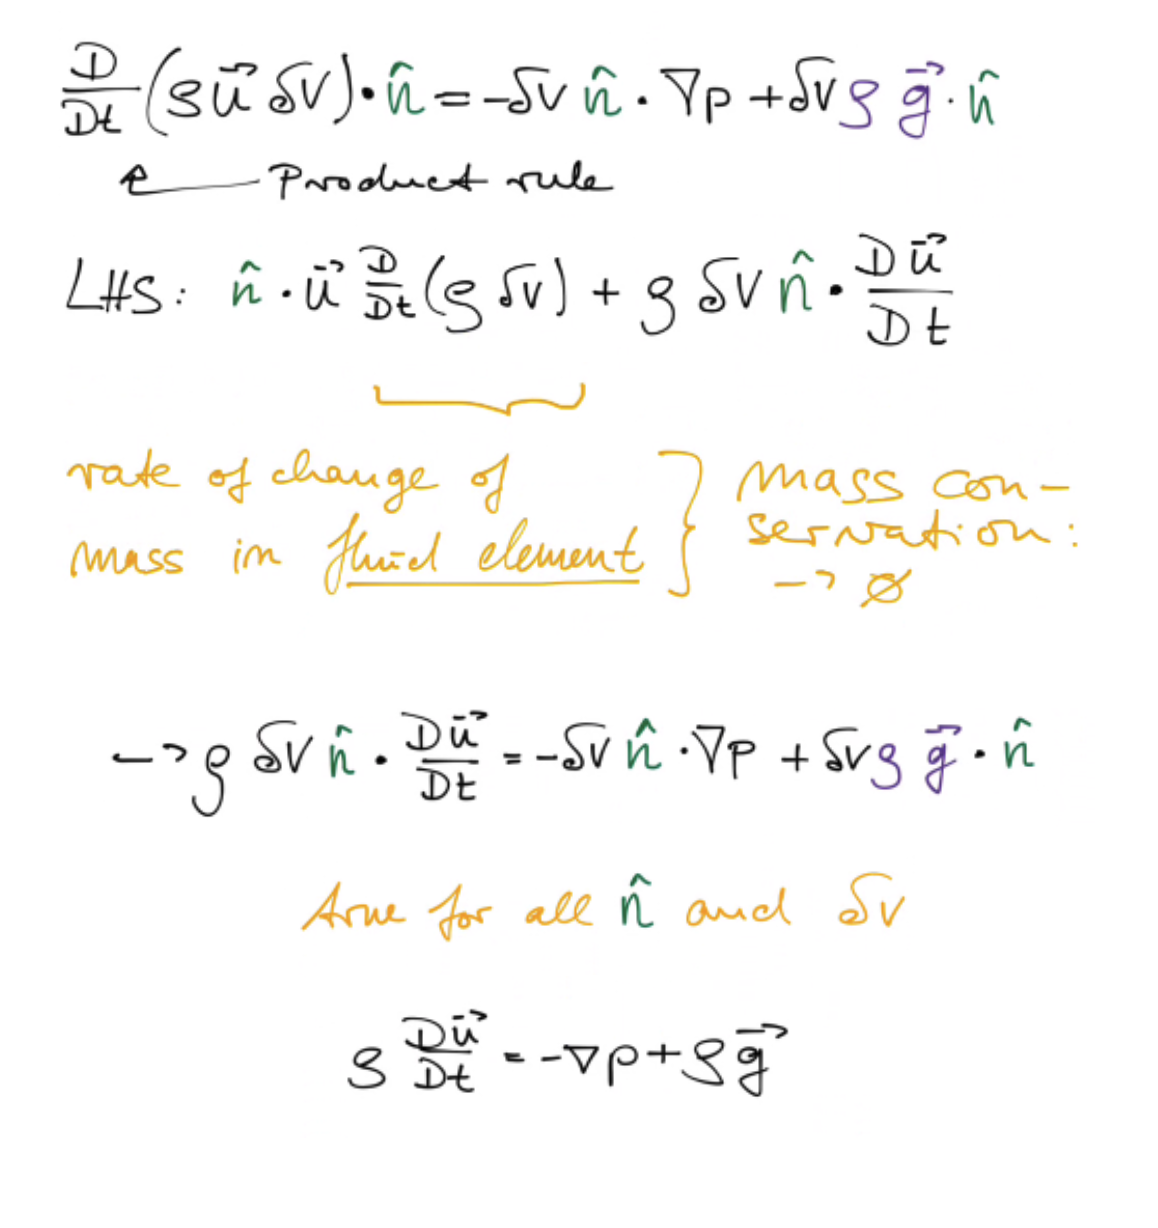 D/Dt (ρ u⃗ δV) · n̂ = -δV n̂ · ∇p + δV ρ g⃗ · n̂
Product rule
LHS: n̂ · u⃗ D/Dt (ρ δV) + ρ δV n̂ · Du⃗/Dt
rate of change of
mass in fluid element
} mass con-
servation:
→ ∅
→ ρ δV n̂ · Du⃗/Dt = -δV n̂ · ∇p + δV ρ g⃗ · n̂
true for all n̂ and δV
ρ Du⃗/Dt = -∇p + ρ g⃗